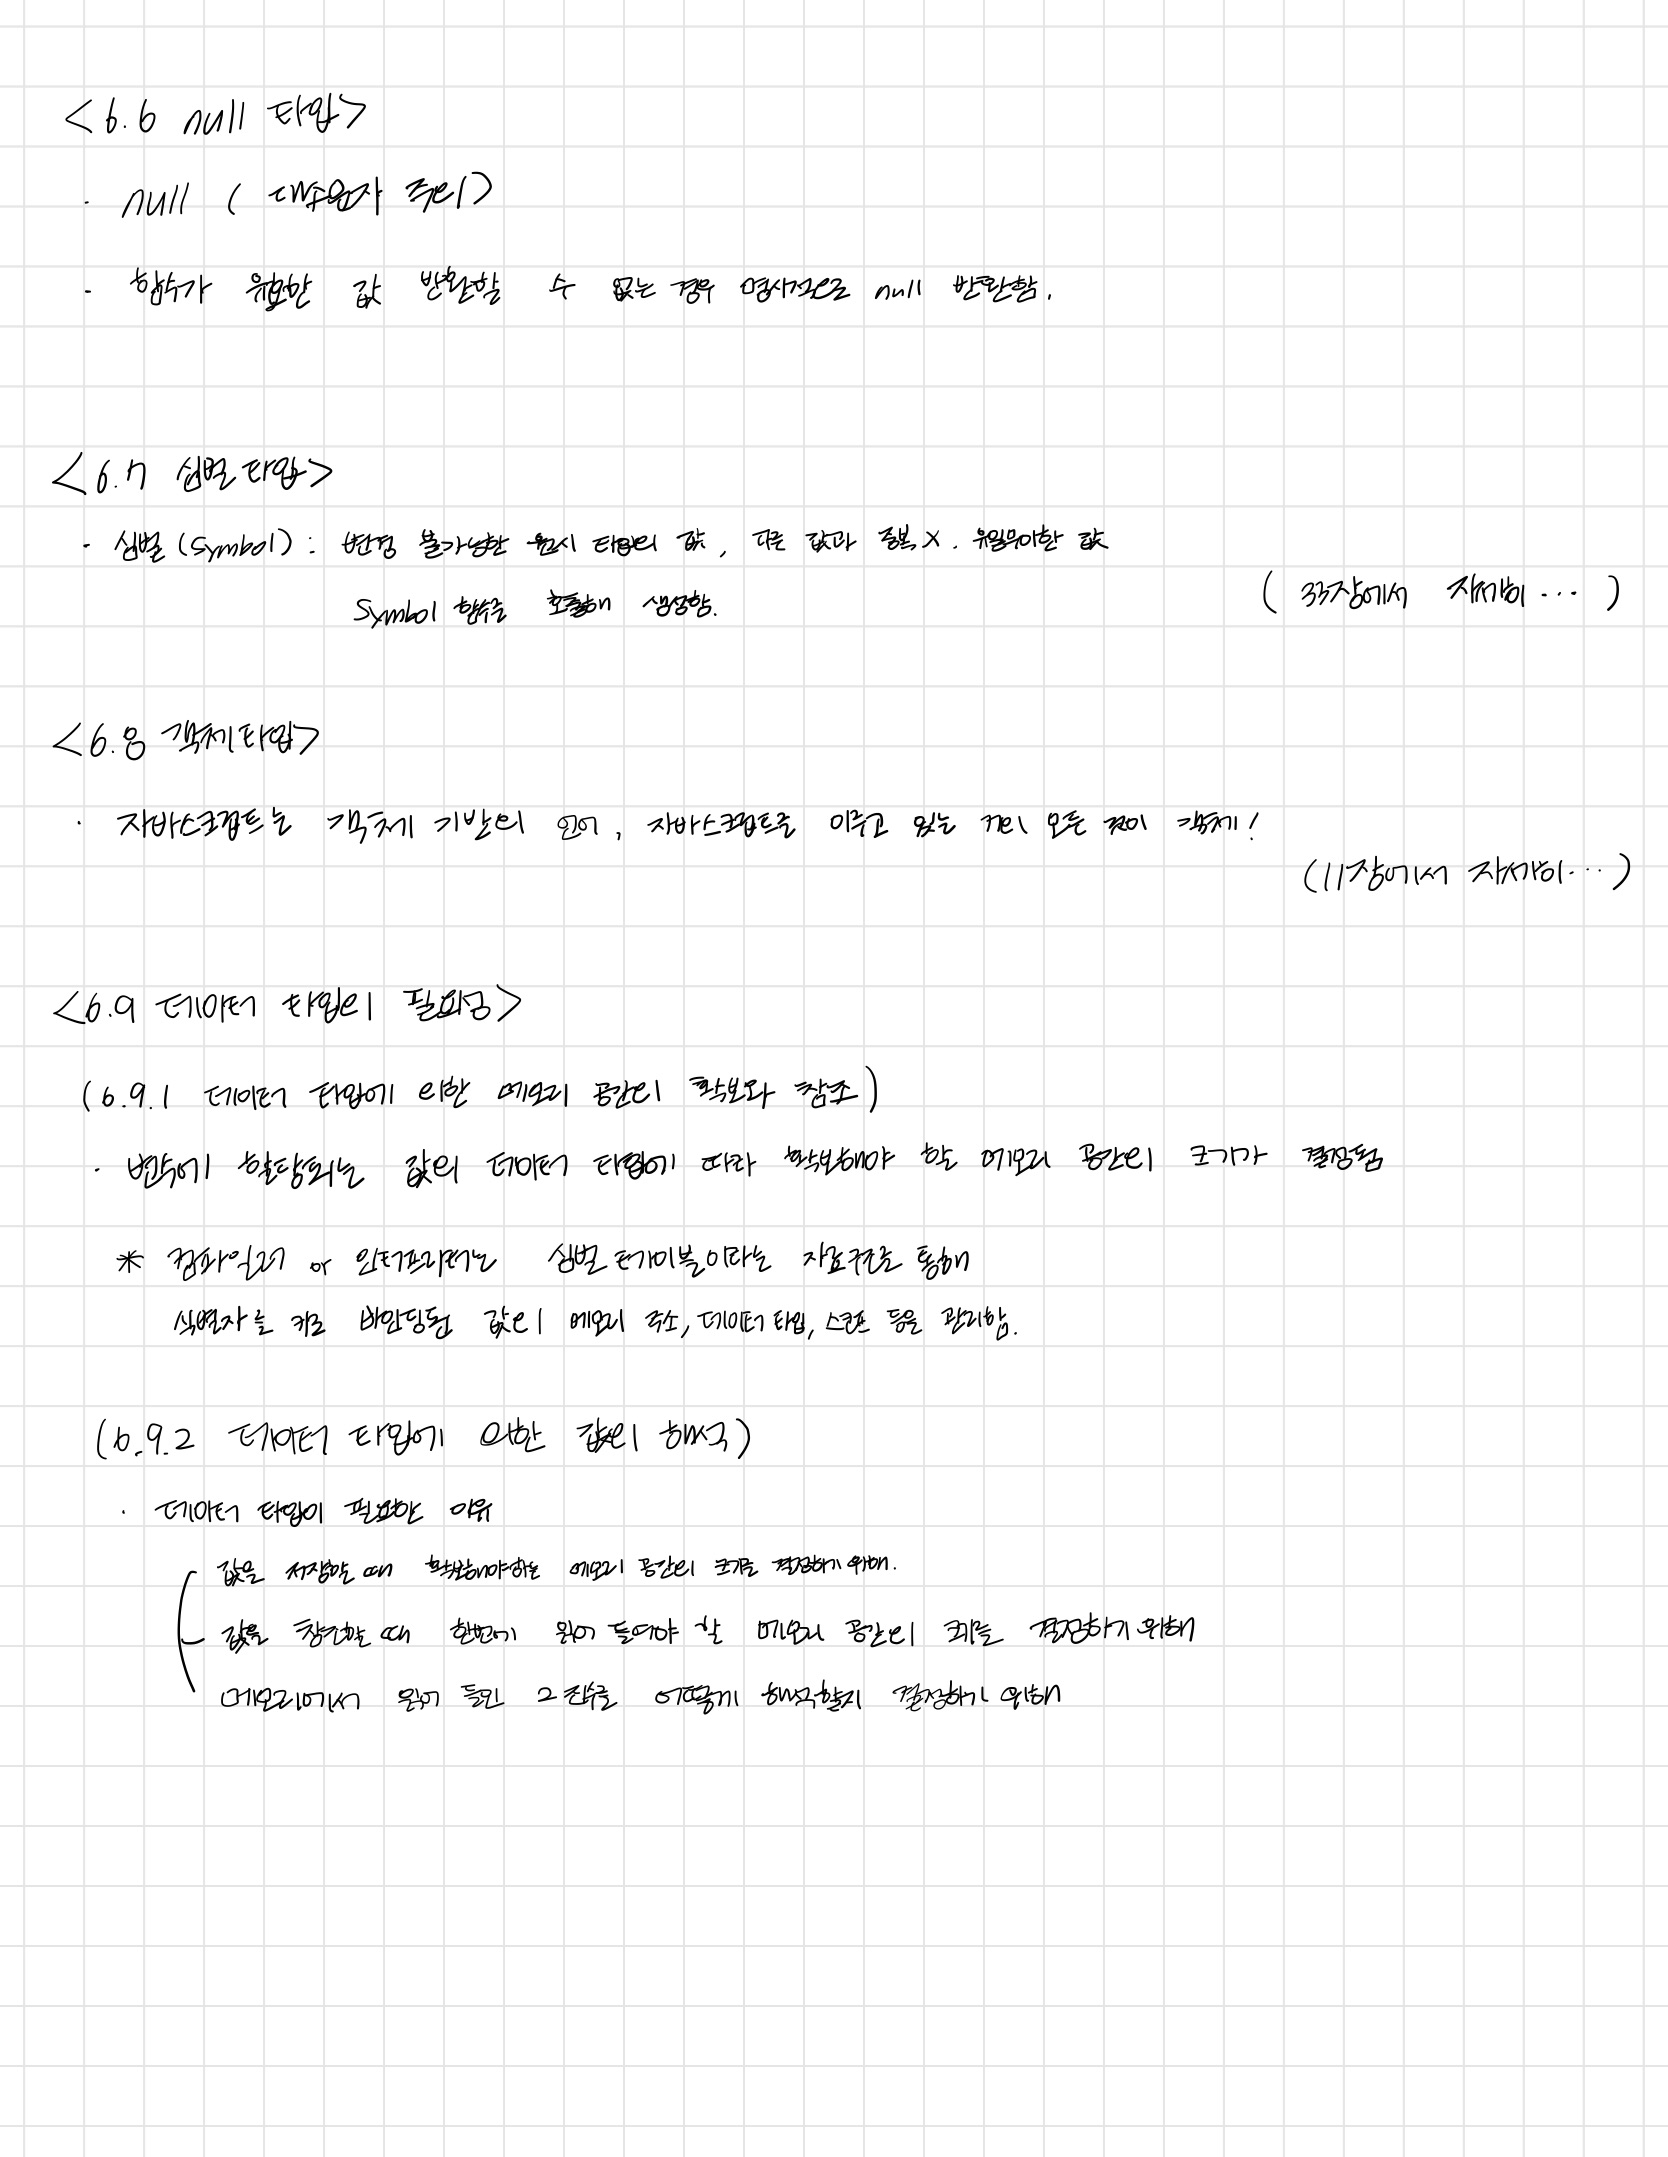 <6.6 null 타입>
· null ( 대소문자 주의)
· 함수가 유효한 값 반환할 수 없는 경우 명시적으로 null 반환함.
<6.7 심벌 타입>
· 심벌 (Symbol) : 변경 불가능한 원시 타입의 값, 다른 값과 중복 X. 유일무이한 값
Symbol 함수를 호출해 생성함.
( 33장에서 자세히 ... )
<6.8 객체 타입>
· 자바스크립트는 객체 기반의 언어, 자바스크립트를 이루고 있는 거의 모든 것이 객체!
(11장에서 자세히... )
<6.9 데이터 타입의 필요성>
(6.9.1 데이터 타입에 의한 메모리 공간의 확보와 참조)
· 변수에 할당되는 값의 데이터 타입에 따라 확보해야 할 메모리 공간의 크기가 결정됨
* 컴파일러 or 인터프리터는 심벌 테이블이라는 자료구조를 통해
식별자를 키로 바인딩된 값의 메모리 주소, 데이터 타입, 스코프 등을 관리함.
(6.9.2 데이터 타입에 의한 값의 해석)
· 데이터 타입이 필요한 이유
값을 저장할 때 확보해야하는 메모리 공간의 크기를 결정하기 위해.
값을 참조할 때 한번에 읽어 들여야 할 메모리 공간의 크기를 결정하기 위해
메모리에서 읽어 들인 2진수를 어떻게 해석할지 결정하기 위해